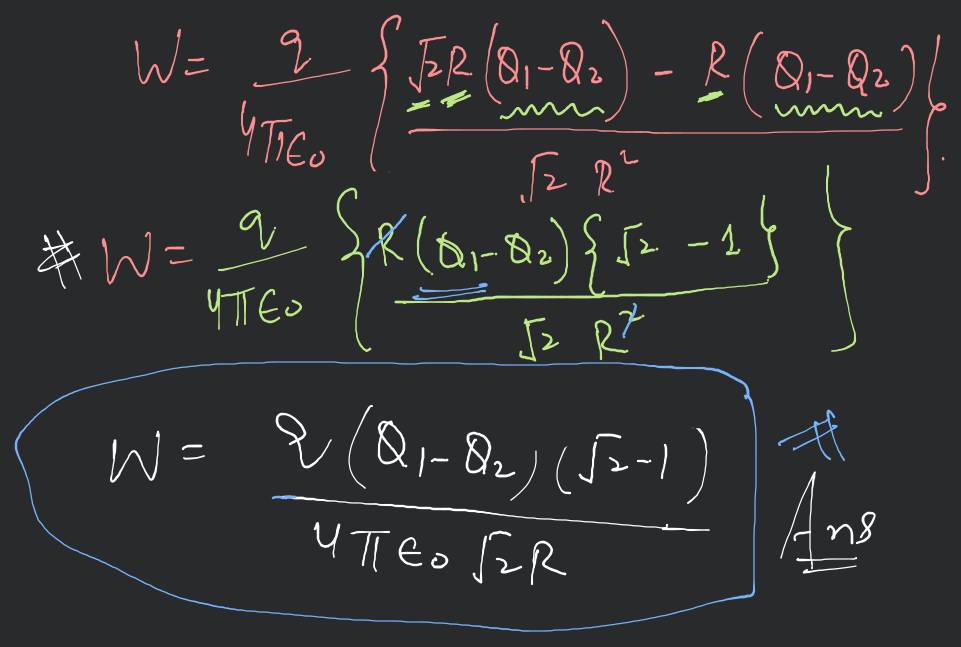 W = q/4πϵ₀ { √2R(Q₁-Q₂) - R(Q₁-Q₂) / √2 R² }.
# W = q/4πϵ₀ { R(Q₁-Q₂){√2 - 1} / √2 R² }
W = q(Q₁-Q₂)(√2-1) / 4πϵ₀√2R # Ans